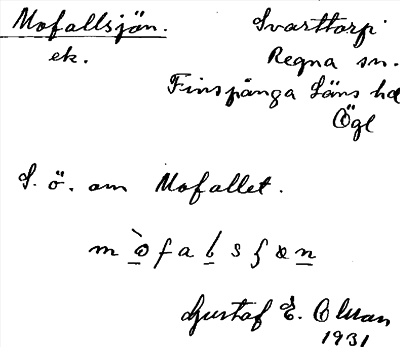 Mofallsjön.
ek.
Svarttorp
Regna sn.
Finspånga Läns hd
Ögl
S. ö. om Mofallet.
Gustaf E.
1931